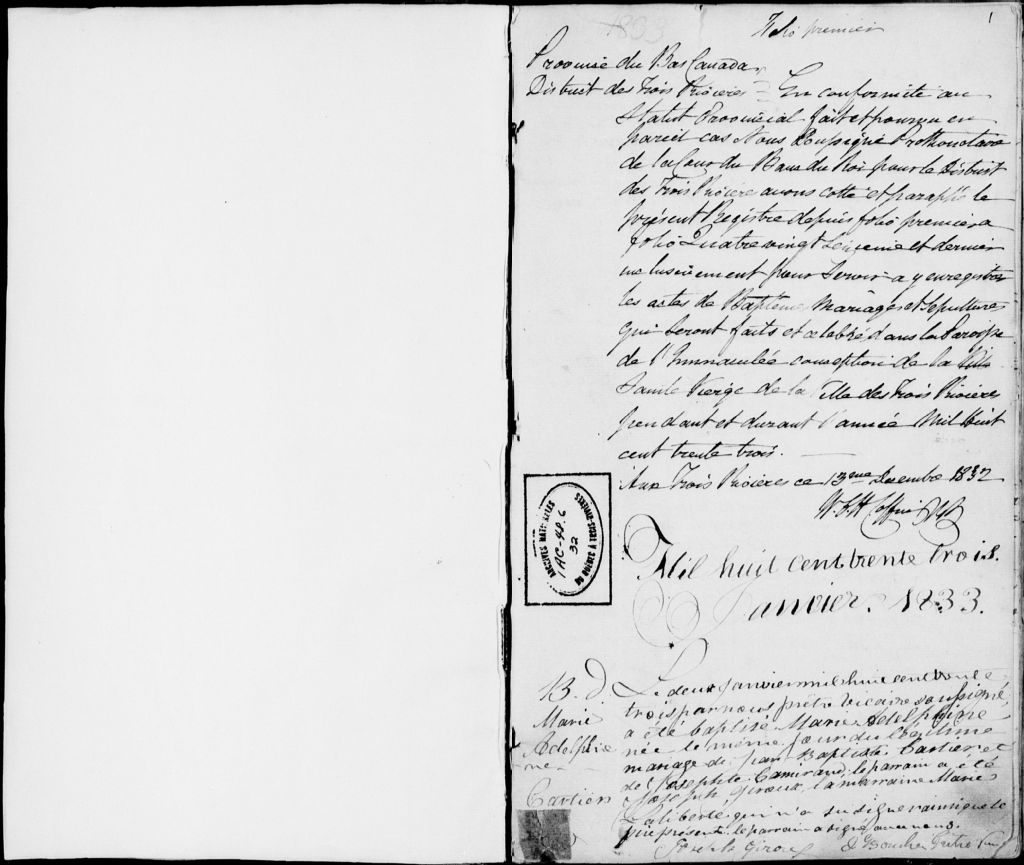 1833
Folio premier
1
Province du Bas Canada
District des Trois Rivieres En conformité au
Statut Provincial fait et pourvu en
pareil cas Nous Soussigné Prothonotaire
de la Cour du Banc du Roi pour le District
des Trois Rivière avons cotté et paraphé le
présent Registre depuis folio premier a
folio Quatre vingt Seizieme et dernier
inclusivement pour Servir a y enregistrer
les actes de Baptême Mariages et Sepultures
qui Seront faits et celebré dans la Paroisse
de l'Immaculée conception de la
Sainte Vierge de la Ville des Trois Rivieres
pendant et durant l'année Mil huit
cent trente trois.
Aux Trois Rivieres ce 13eme Decembre 1832
Coffin
ARCHIVES NATIONALES
DU QUEBEC A TROIS-RIVIERES
1AC-48.6
32
Mil huit cent trente trois.
Janvier. 1833.
B.
Marie
Adelphi
ne
Cartier
Le deux Janvier mil huit cent trente
trois par nous prêtre Vicaire soussigné
a été baptisé Marie Adelphine
née le même jour du légitime
mariage de Jean Baptiste Cartier et
de Josephte Camirand; le parrain a été
Joseph Giroux, la marraine Marie
Laliberté qui n'a su signer ainsi que le
père présent, le parrain a signé avec nous.
Joseph Giroux Boucher Ptre